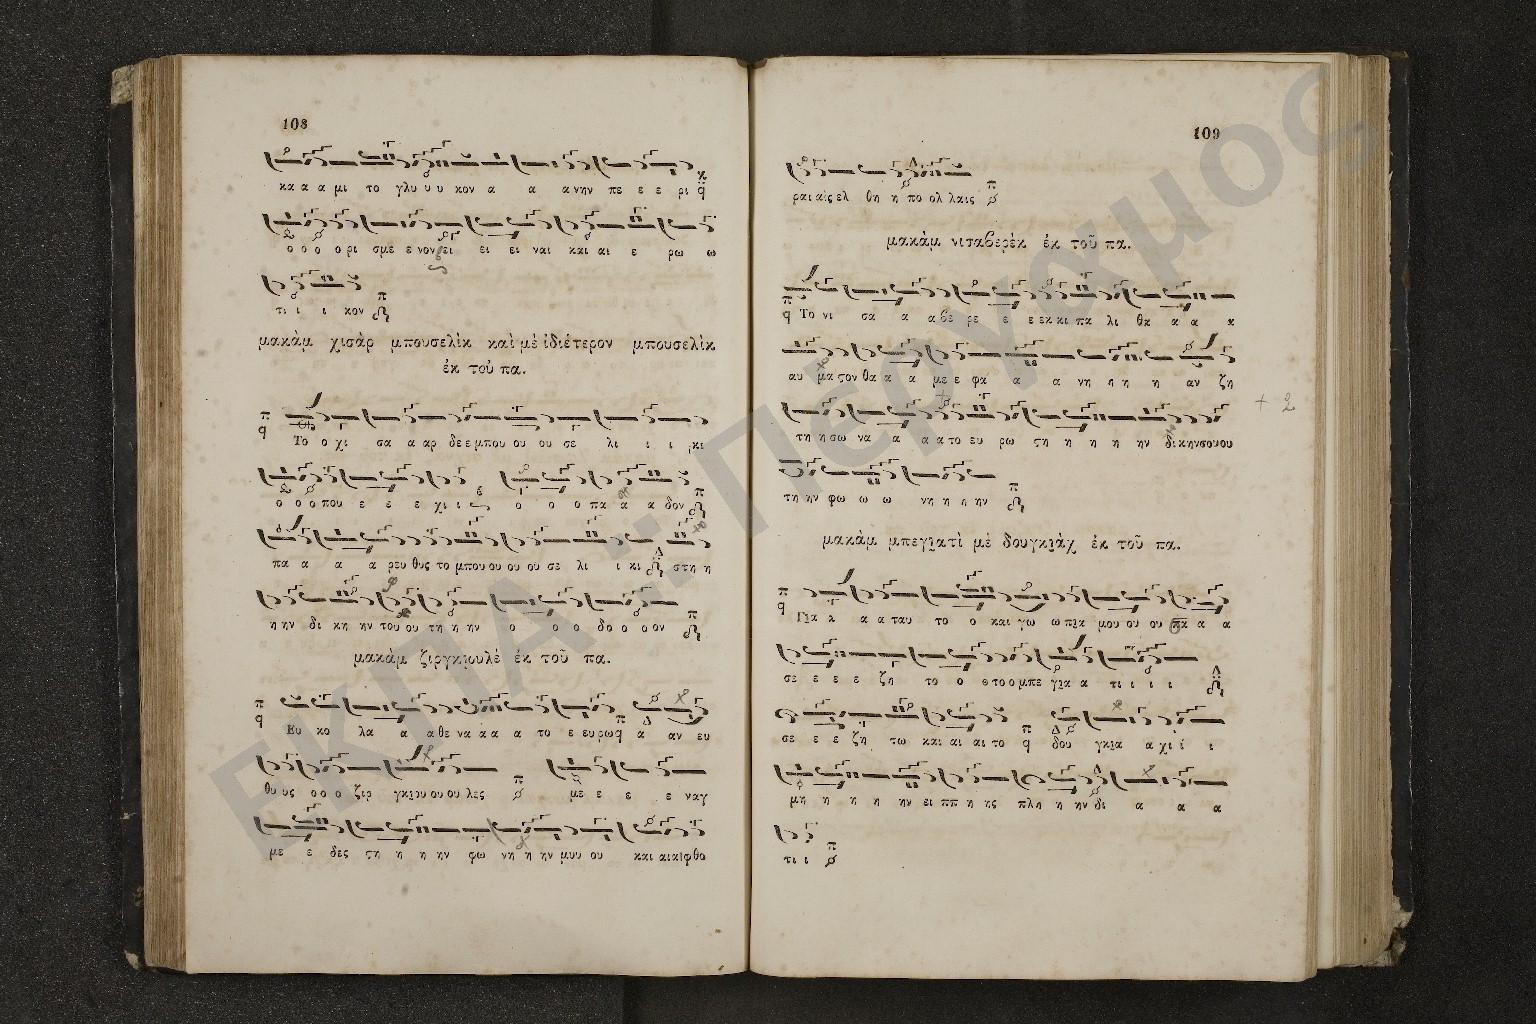 108
κα α α μι το γλυ υ υ κον α α α νην πε ε ε ρι
ο ο ο ο ρι σμε ε νον ει ει ει ναι και αι ε ρω ω
τι ι ι κον
μακὰμ χισὰρ μπουσελὶκ καὶ μὲ ἰδιέτερον μπουσελὶκ
ἐκ τοῦ πα.
Το ο χι σα α αρ δε ε μπου ου ου σε λι ι ι κι
ο ο ο που ε ε ε χι ι ο ο ο πα α α δον
πα α α α ρευ θυς το μπου ου ου ου σε λι ι κι στη η
η ην δι κη ην του ου τη η ην ο ο ο δο ο ο ον
μακὰμ ζιργκιουλὲ ἐκ τοῦ πα.
Ευ κο λα α α θε να α α α το ε ευ ρω α αν ευ
θυ υς ο ο ο ζιρ γκιου ου ου λες με ε ε ε ναγ
με ε δες τη η η ην φω νη η ην μου ου και αι αι φθο
109
ραι αις ελ θη η πο ολ λαις
μακὰμ νισαβερὲκ ἐκ τοῦ πα.
Το νι σα α α βε ρε ε ε εκ κι πα λι θα α α α
αυ μα τον θα α α με ε φα α α νη η η η αν ζη
τη η σω να α α α το ευ ρω τη η η η ην δι κην σου ου
τη ην φω ω ω νη η η ην
μακὰμ μπεγιατὶ μὲ δουγκιὰχ ἐκ τοῦ πα.
Για α α α ταυ το ο και γω ω πια μου ου ου πα α α
σε ε ε ε ζη το ο ο το ο μπε για α τι ι ι ι
σε ε ε ζη τω και αι αι το δου γκια α χι ι ι
μη η η η ην ει ππ η ης πλη η ην δι α α α
τι ι